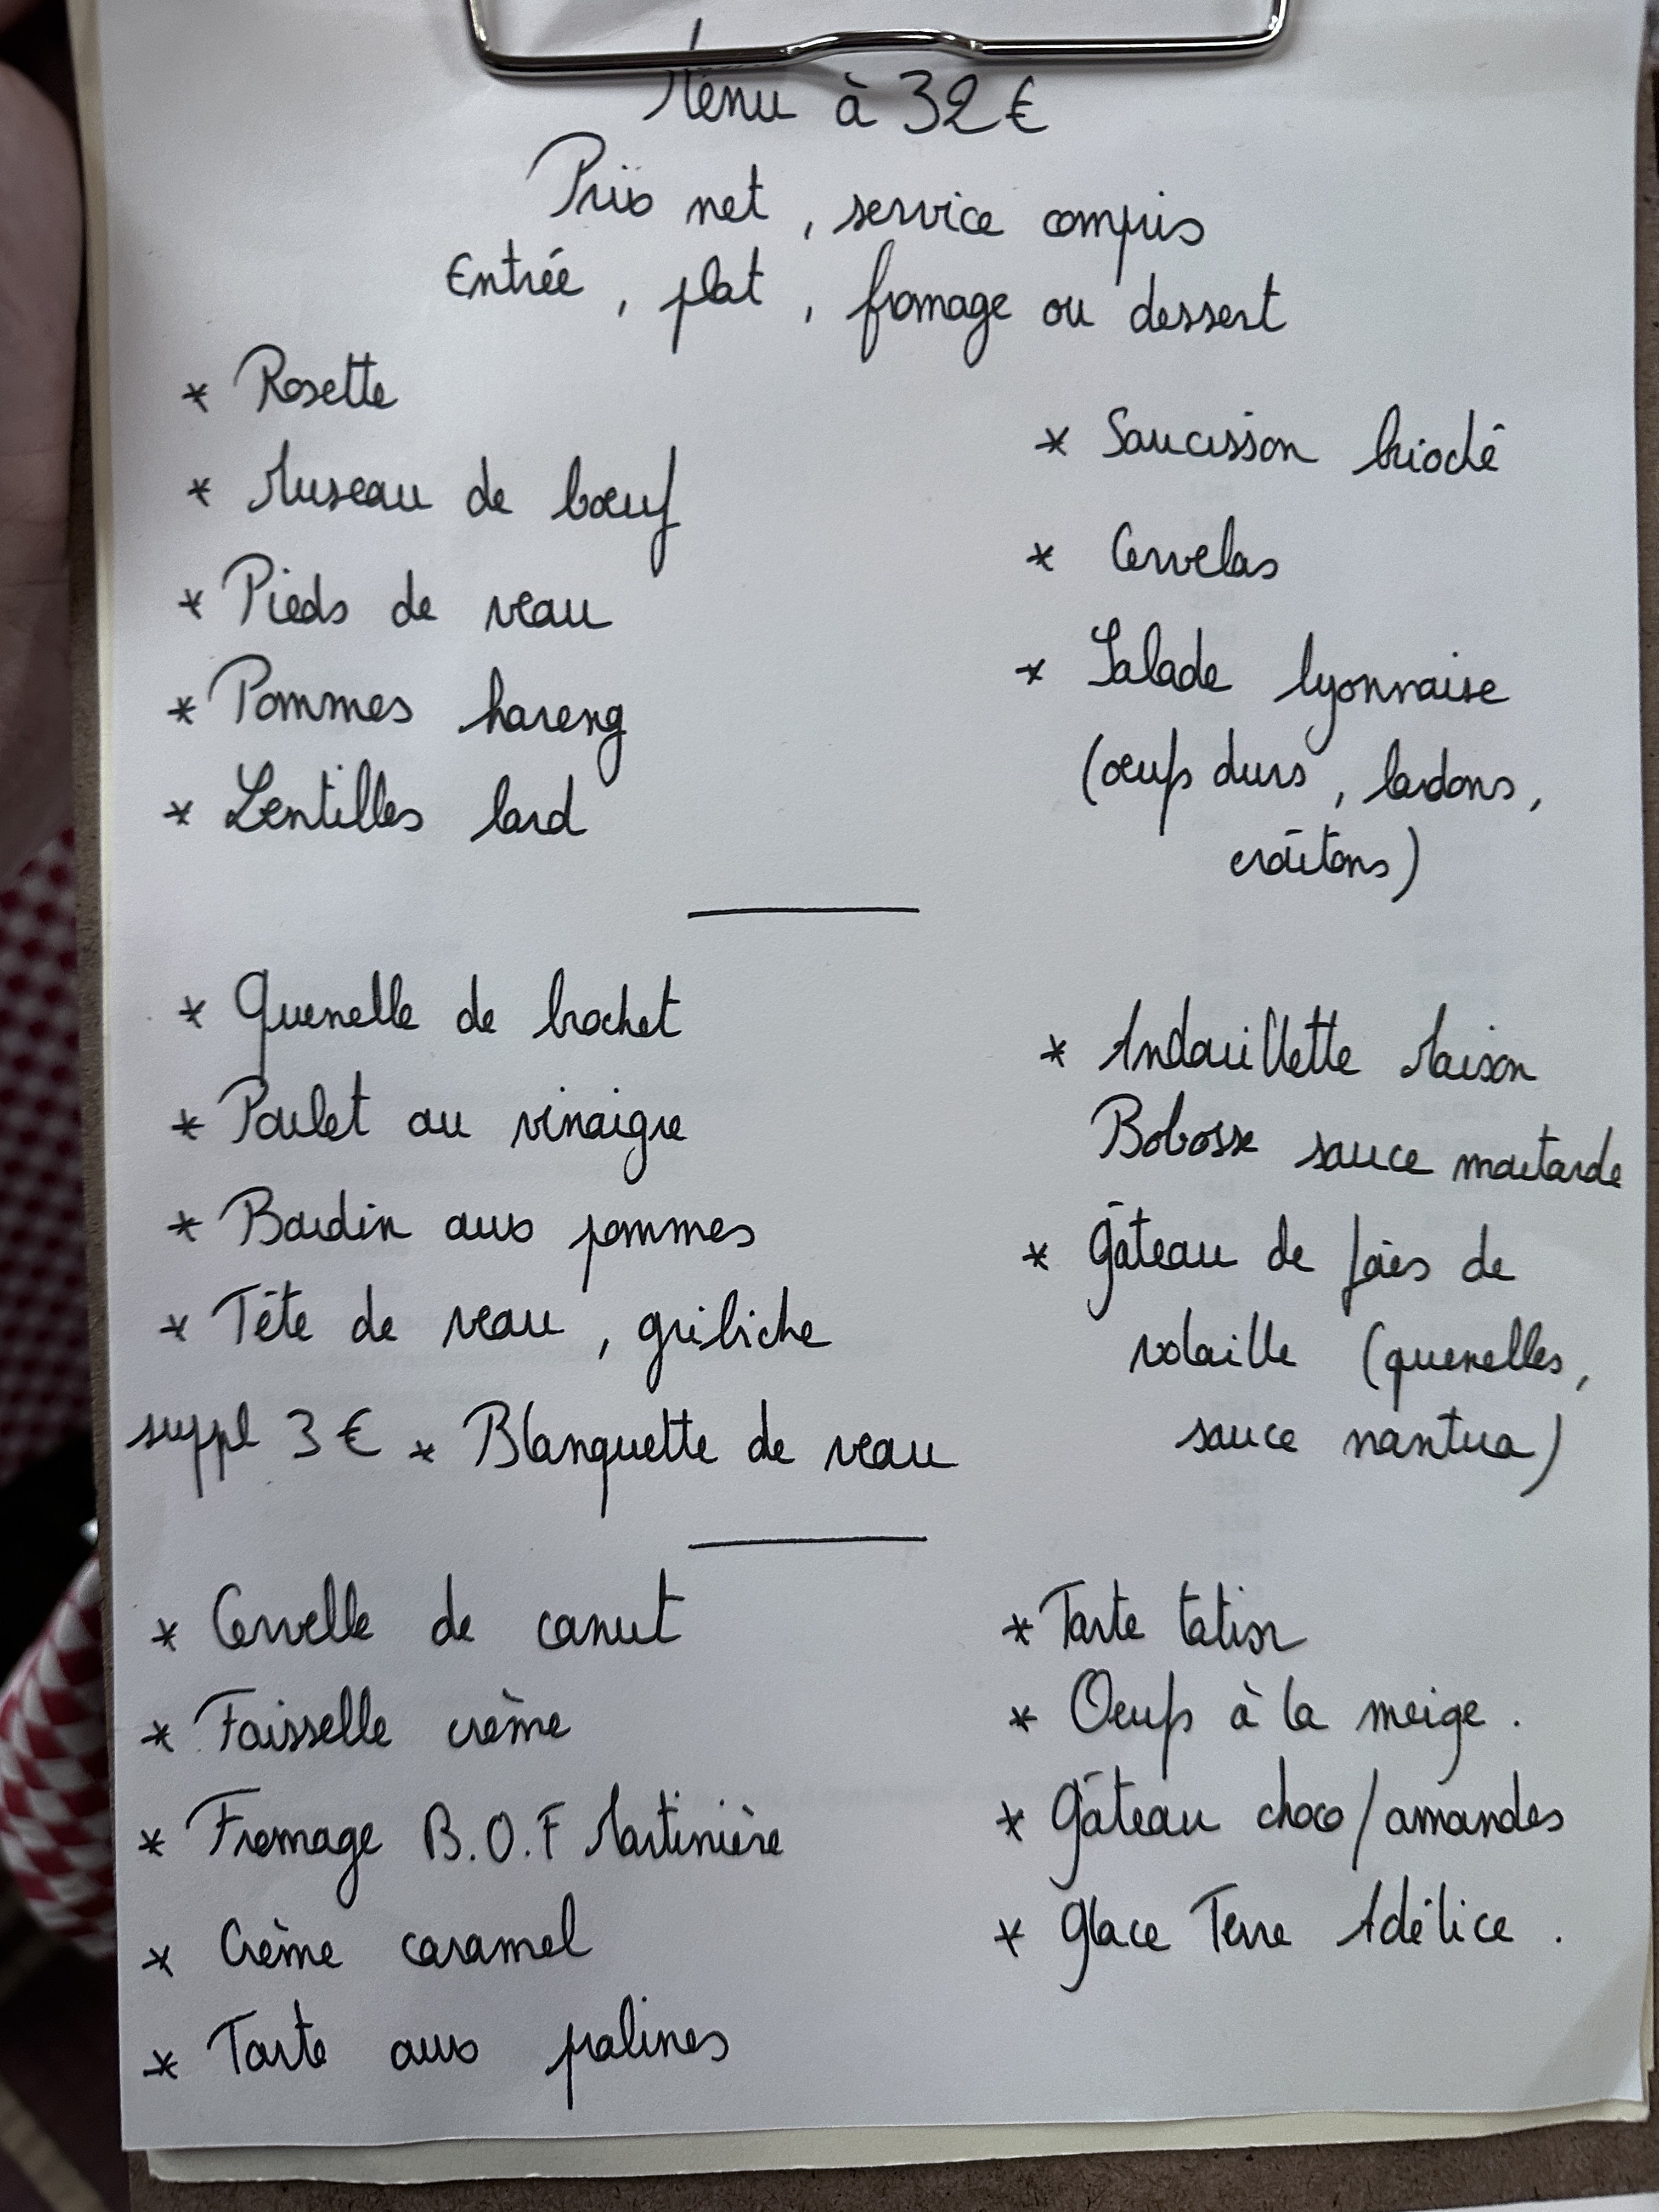 Menu à 32 €
Prix net, service compris
Entrée, plat, fromage ou dessert
* Rosette
* Museau de bœuf
* Pieds de veau
* Pommes hareng
* Lentilles lard
* Saucisson brioché
* Cervelas
* Salade lyonnaise
(œufs durs, lardons,
croûtons)
* Quenelle de brochet
* Poulet au vinaigre
* Boudin aux pommes
* Tête de veau, gribiche
suppl 3 € * Blanquette de veau
* Andouillette Maison
Bobosse sauce moutarde
* Gâteau de foies de
volaille (quenelles,
sauce nantua)
* Cervelle de canut
* Faisselle crème
* Fromage B.O.F Martinière
* Crème caramel
* Tarte aux pralines
* Tarte tatin
* Oeufs à la neige.
* Gâteau choco/amandes
* Glace Terre Adélice.